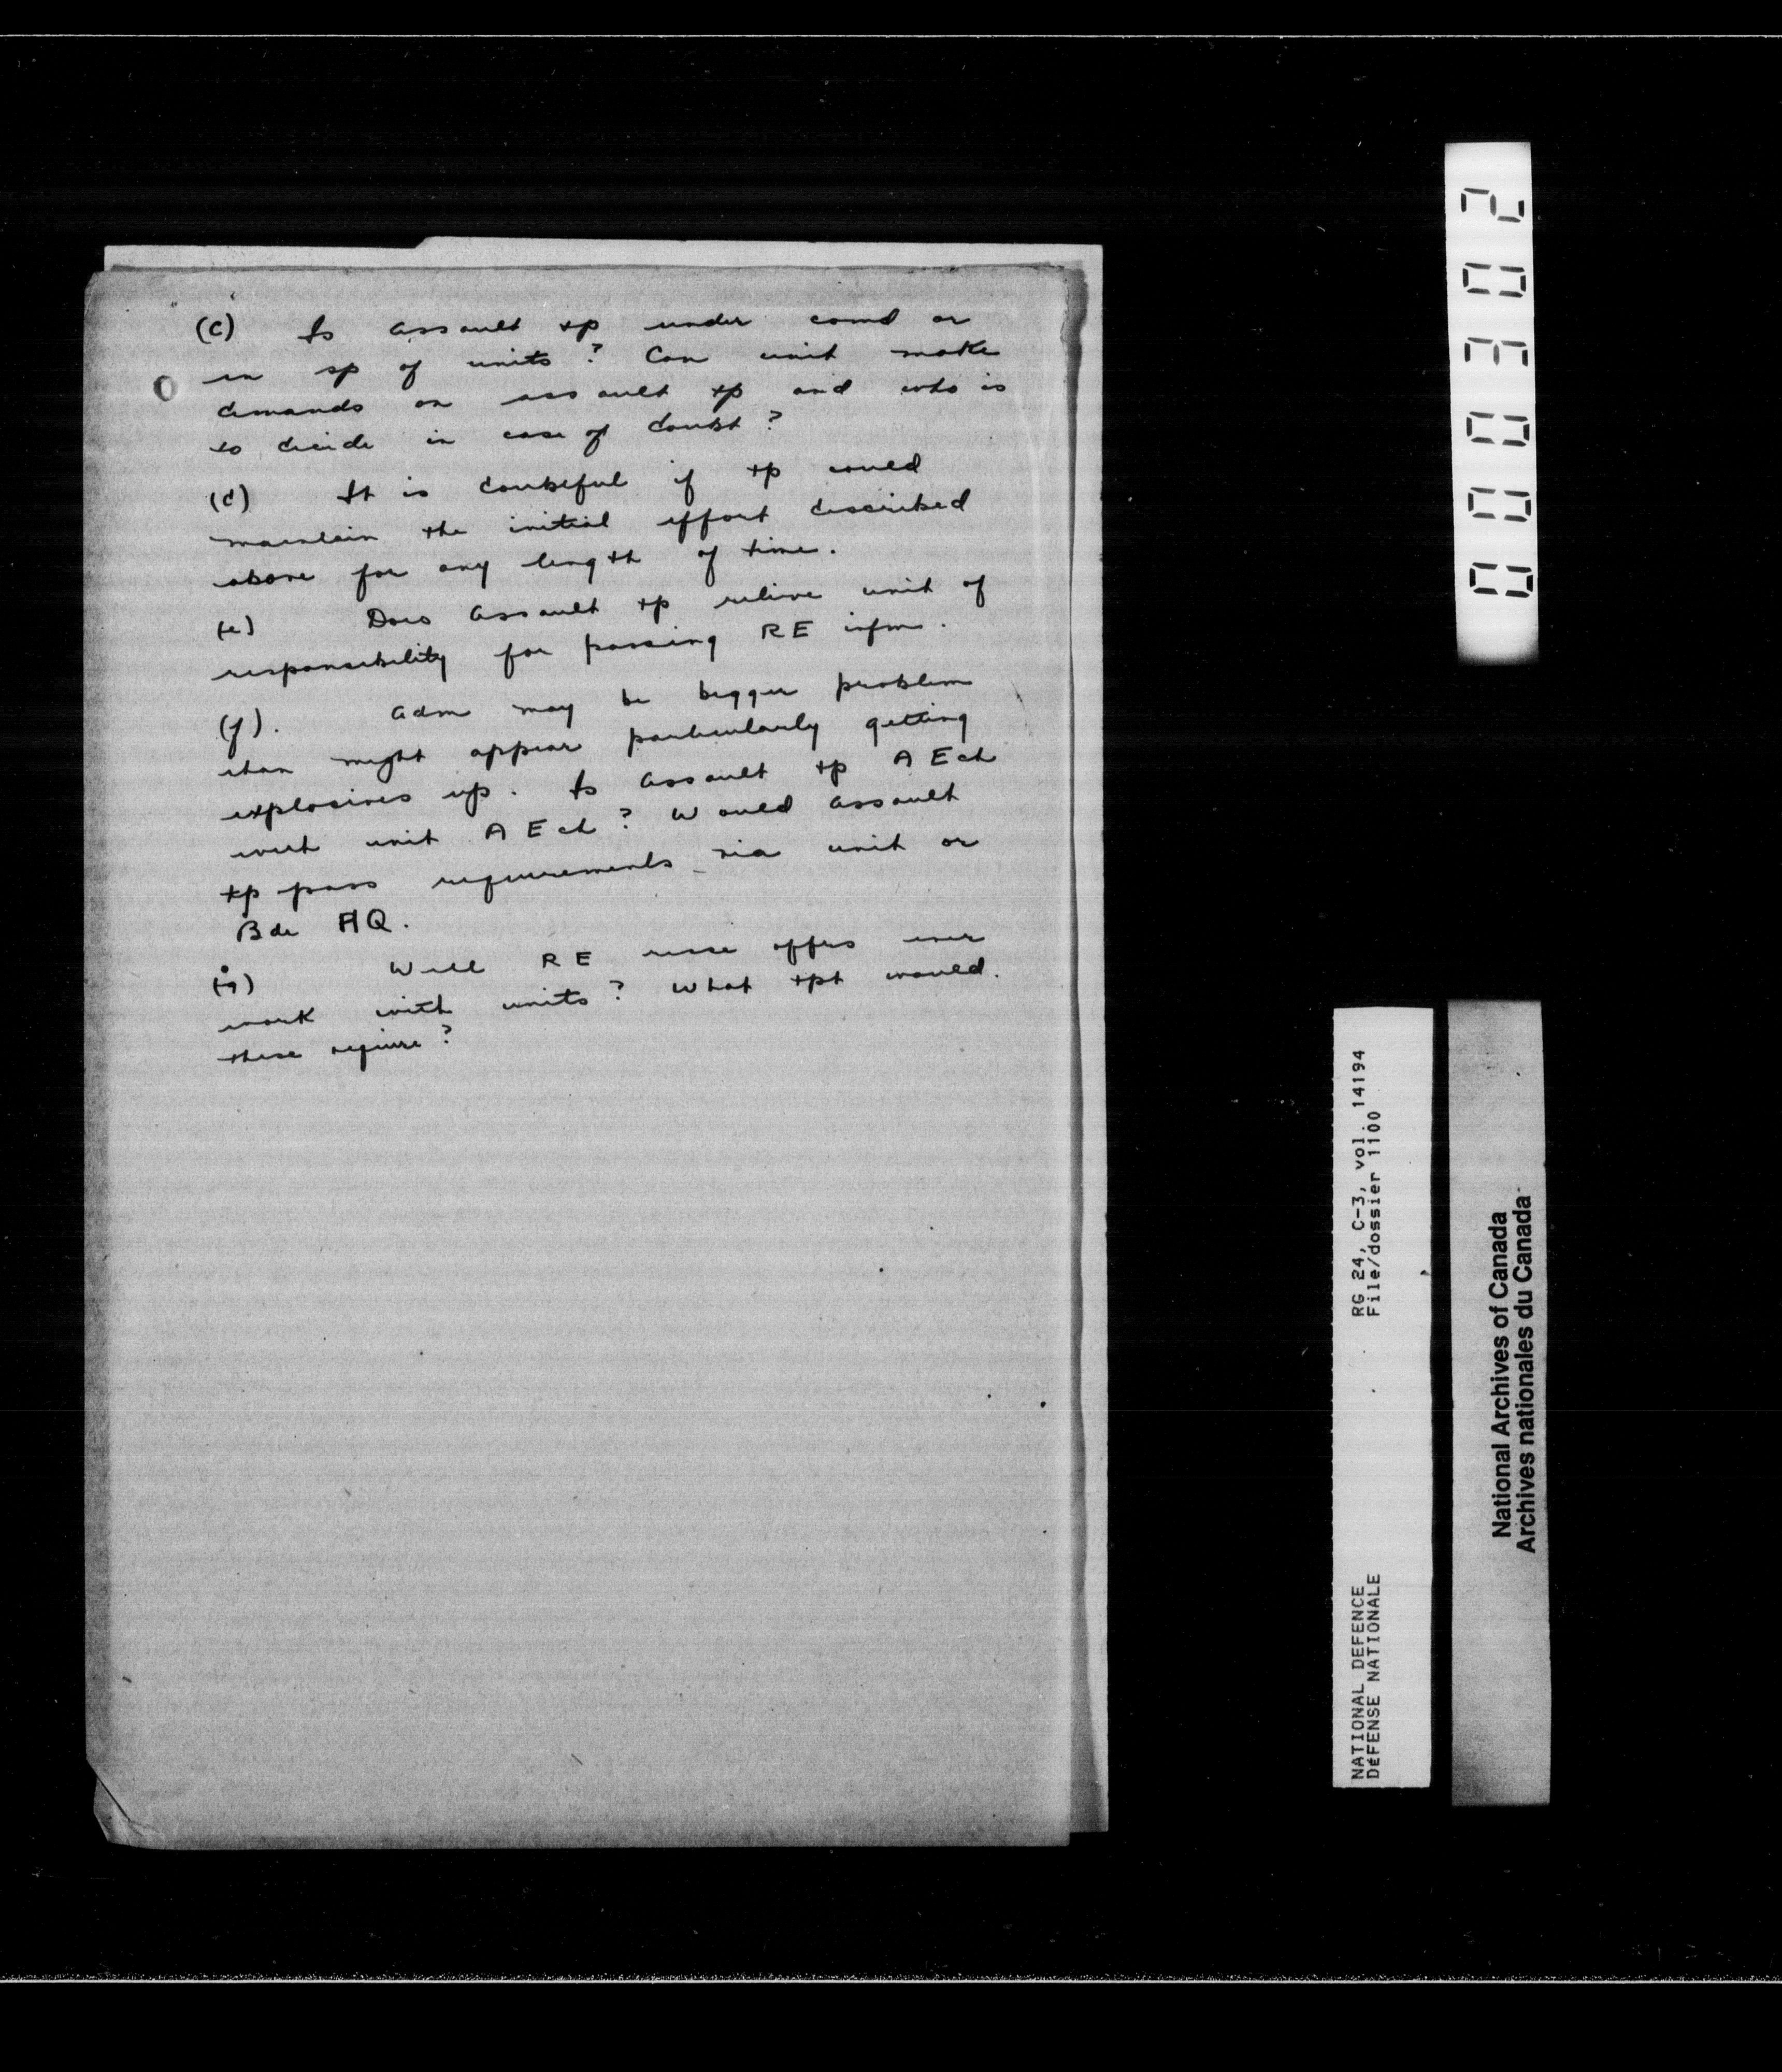 (c) Is assault tp under comd or
in sp of units? Can unit make
demands on assault tp and who is
to decide in case of doubt?
(d) It is doubtful if tp could
maintain the initial effort described
above for any length of time.
(e) Does assault tp relieve unit of
responsibility for passing RE infm.
(f). Adm may be bigger problem
than might appear particularly getting
explosives up. Is assault tp A Ech
with unit A Ech? Would assault
tp pass requirements via unit or
Bde HQ.
(g) Will RE offrs ever
work with units? What tpt would
these require?
000302
RG 24, C-3, vol. 14194
File/dossier 1100
NATIONAL DEFENCE
DÉFENSE NATIONALE
National Archives of Canada
Archives nationales du Canada